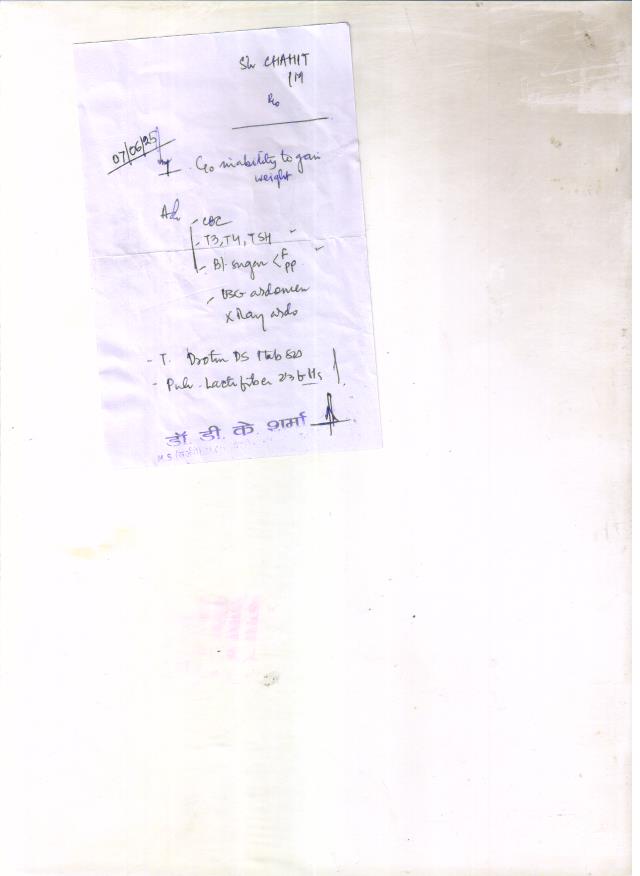 Shr CHAHIT
07/06/25
C/o inability to gain
weight
Adv
- CBC
- T3, T4, TSH
- Bl. sugar < F
PP
USG abdomen
X Ray abdo
- T. Drotin DS 1 tab SOS
- Pulv. Lactifiber 2/3 tr Hs
डॉ. डी. के. शर्मा